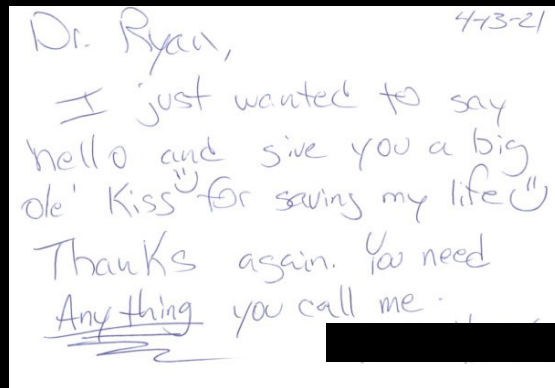 4-13-21
Dr. Ryan,
I just wanted to say
hello and give you a big
ole' Kiss for saving my life
Thanks again. You need
Anything you call me.